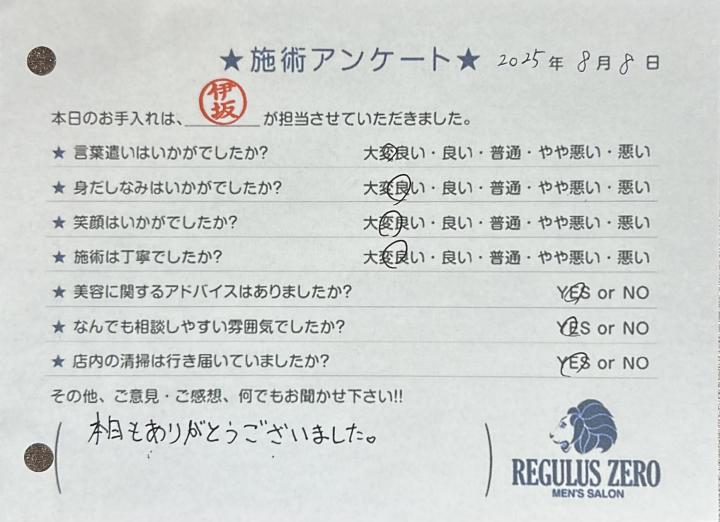 ★施術アンケート★ 2025年 8月 8日
本日のお手入れは、伊坂が担当させていただきました。
★ 言葉遣いはいかがでしたか? 大変良い・良い・普通・やや悪い・悪い
★ 身だしなみはいかがでしたか? 大変良い・良い・普通・やや悪い・悪い
★ 笑顔はいかがでしたか? 大変良い・良い・普通・やや悪い・悪い
★ 施術は丁寧でしたか? 大変良い・良い・普通・やや悪い・悪い
★ 美容に関するアドバイスはありましたか? YES or NO
★ なんでも相談しやすい雰囲気でしたか? YES or NO
★ 店内の清掃は行き届いていましたか? YES or NO
その他、ご意見・ご感想、何でもお聞かせ下さい!!
本日もありがとうございました。
REGULUS ZERO
MEN'S SALON